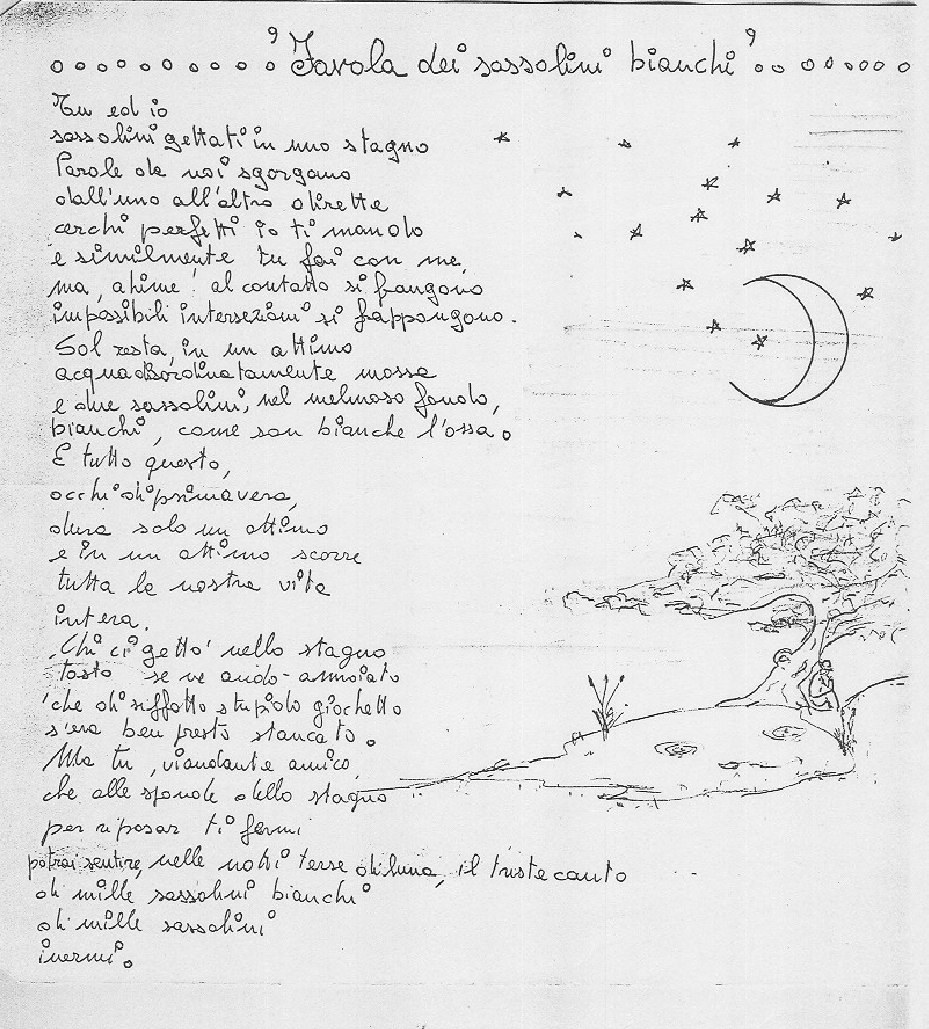 °°°°°°°°°° 'Favola dei sassolini bianchi' °°°°°°°°
Tu ed io
sassolini gettati in uno stagno
Parole da noi sgorgano
dall'uno all'altro dirette
cerchi perfetti io ti mando
e similmente tu fai con me,
ma, ahimè! al contatto si frangono
impossibili intersezioni si frappongono.
Sol resta, in un attimo
acqua disordinatamente mossa
e due sassolini, nel melmoso fondo,
bianchi, come son bianche l'ossa.
E tutto questo,
occhi di primavera,
dura solo un attimo
e in un attimo scorre
tutta la nostra vita
intera.
Chi ci gettò nello stagno
tosto se ne andò annoiato
'che di siffatto stupido giochetto
s'era ben presto stancato.
Ma tu, viandante amico,
che alle sponde dello stagno
per riposar ti fermi
potrai sentire, nelle notti terse di luna, il triste canto
di mille sassolini bianchi
di mille sassolini
inermi.